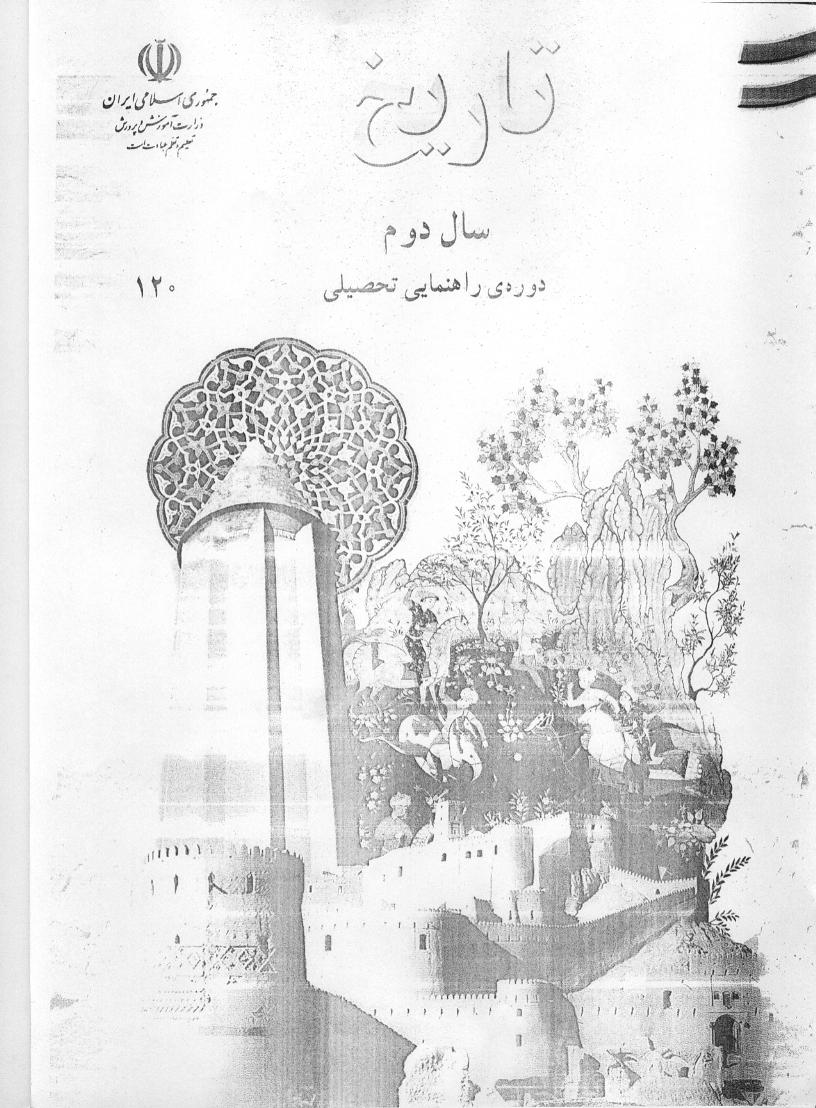 تاریخ
جمهوری اسلامی ایران
وزارت آموزش و پرورش
تعلیم و تعلم عبادت است
سال دوم
دوره‌ی راهنمایی تحصیلی
۱۲۰